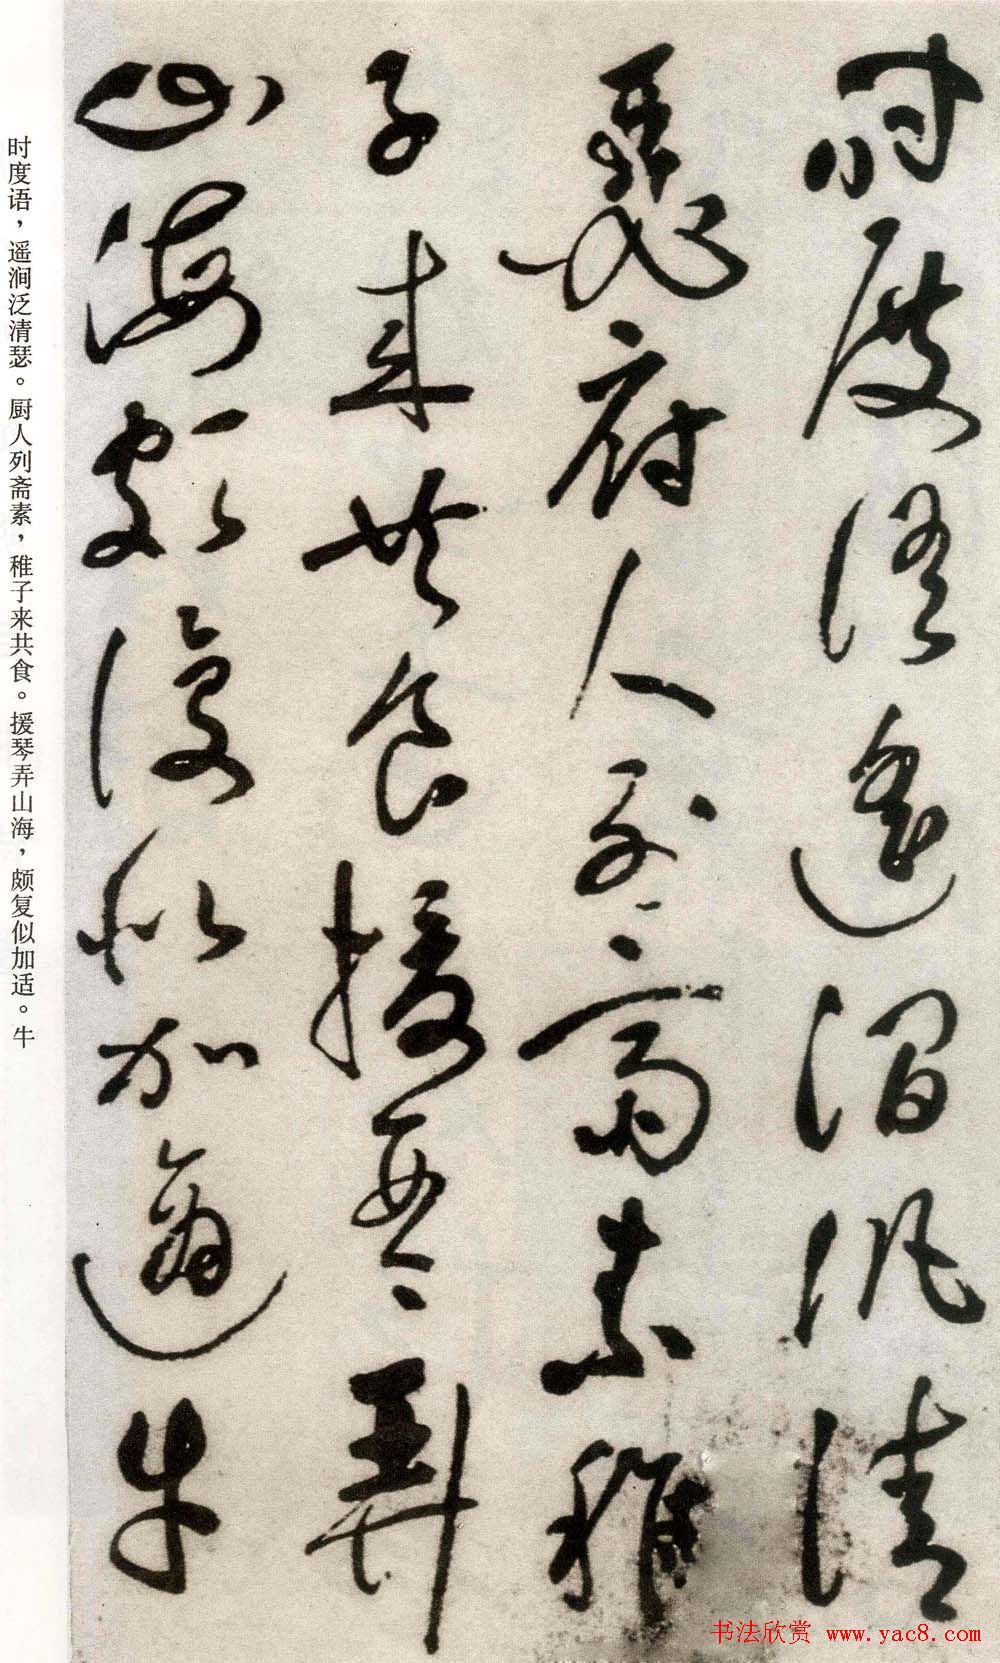 时度语遥涧泛清
瑟厨人列斋素稚
子来共食援琴弄
山海颇复似加适牛
时度语，遥涧泛清瑟。厨人列斋素，稚子来共食。援琴弄山海，颇复似加适。牛
书法欣赏 www.yac8.com